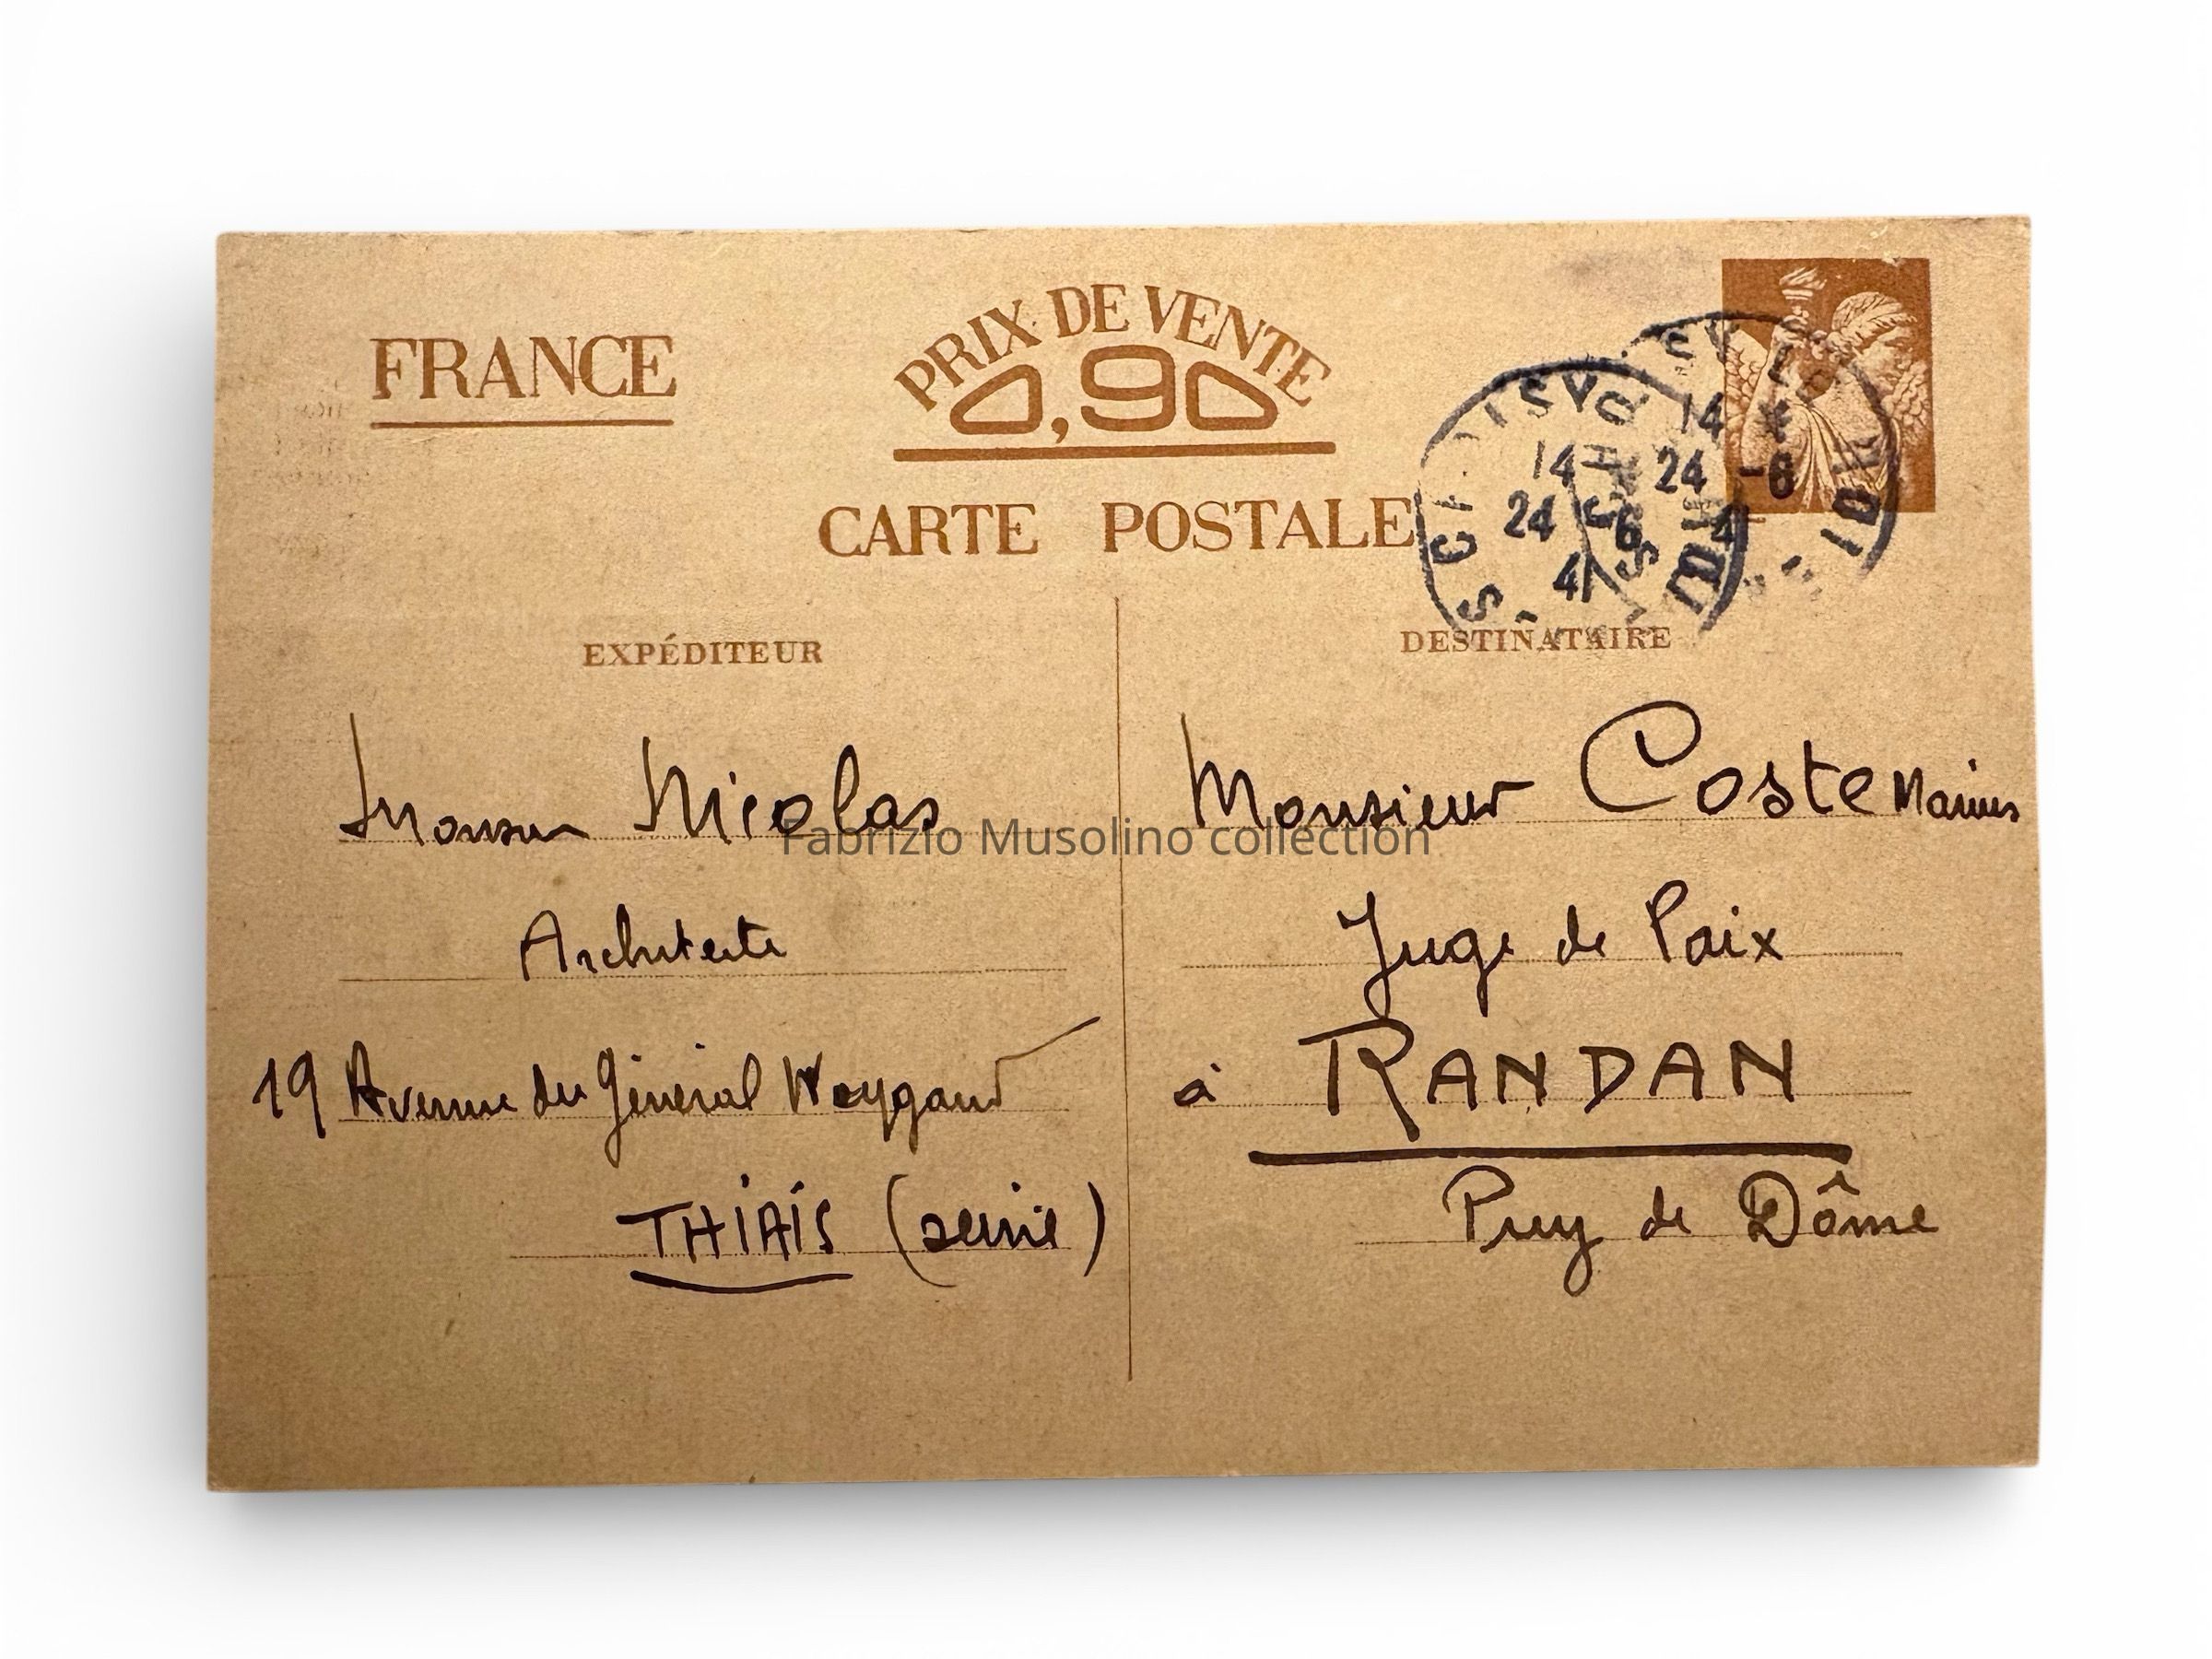 FRANCE
PRIX DE VENTE
0,90
CARTE POSTALE
14
24 -6
14
24 6
41
EXPÉDITEUR
DESTINATAIRE
Monsieur Nicolas
Architecte
19 Avenue du Général Weygand
THIAIS (seine)
Monsieur Coste Marius
Juge de Paix
à RANDAN
Puy de Dôme
Fabrizio Musolino collection